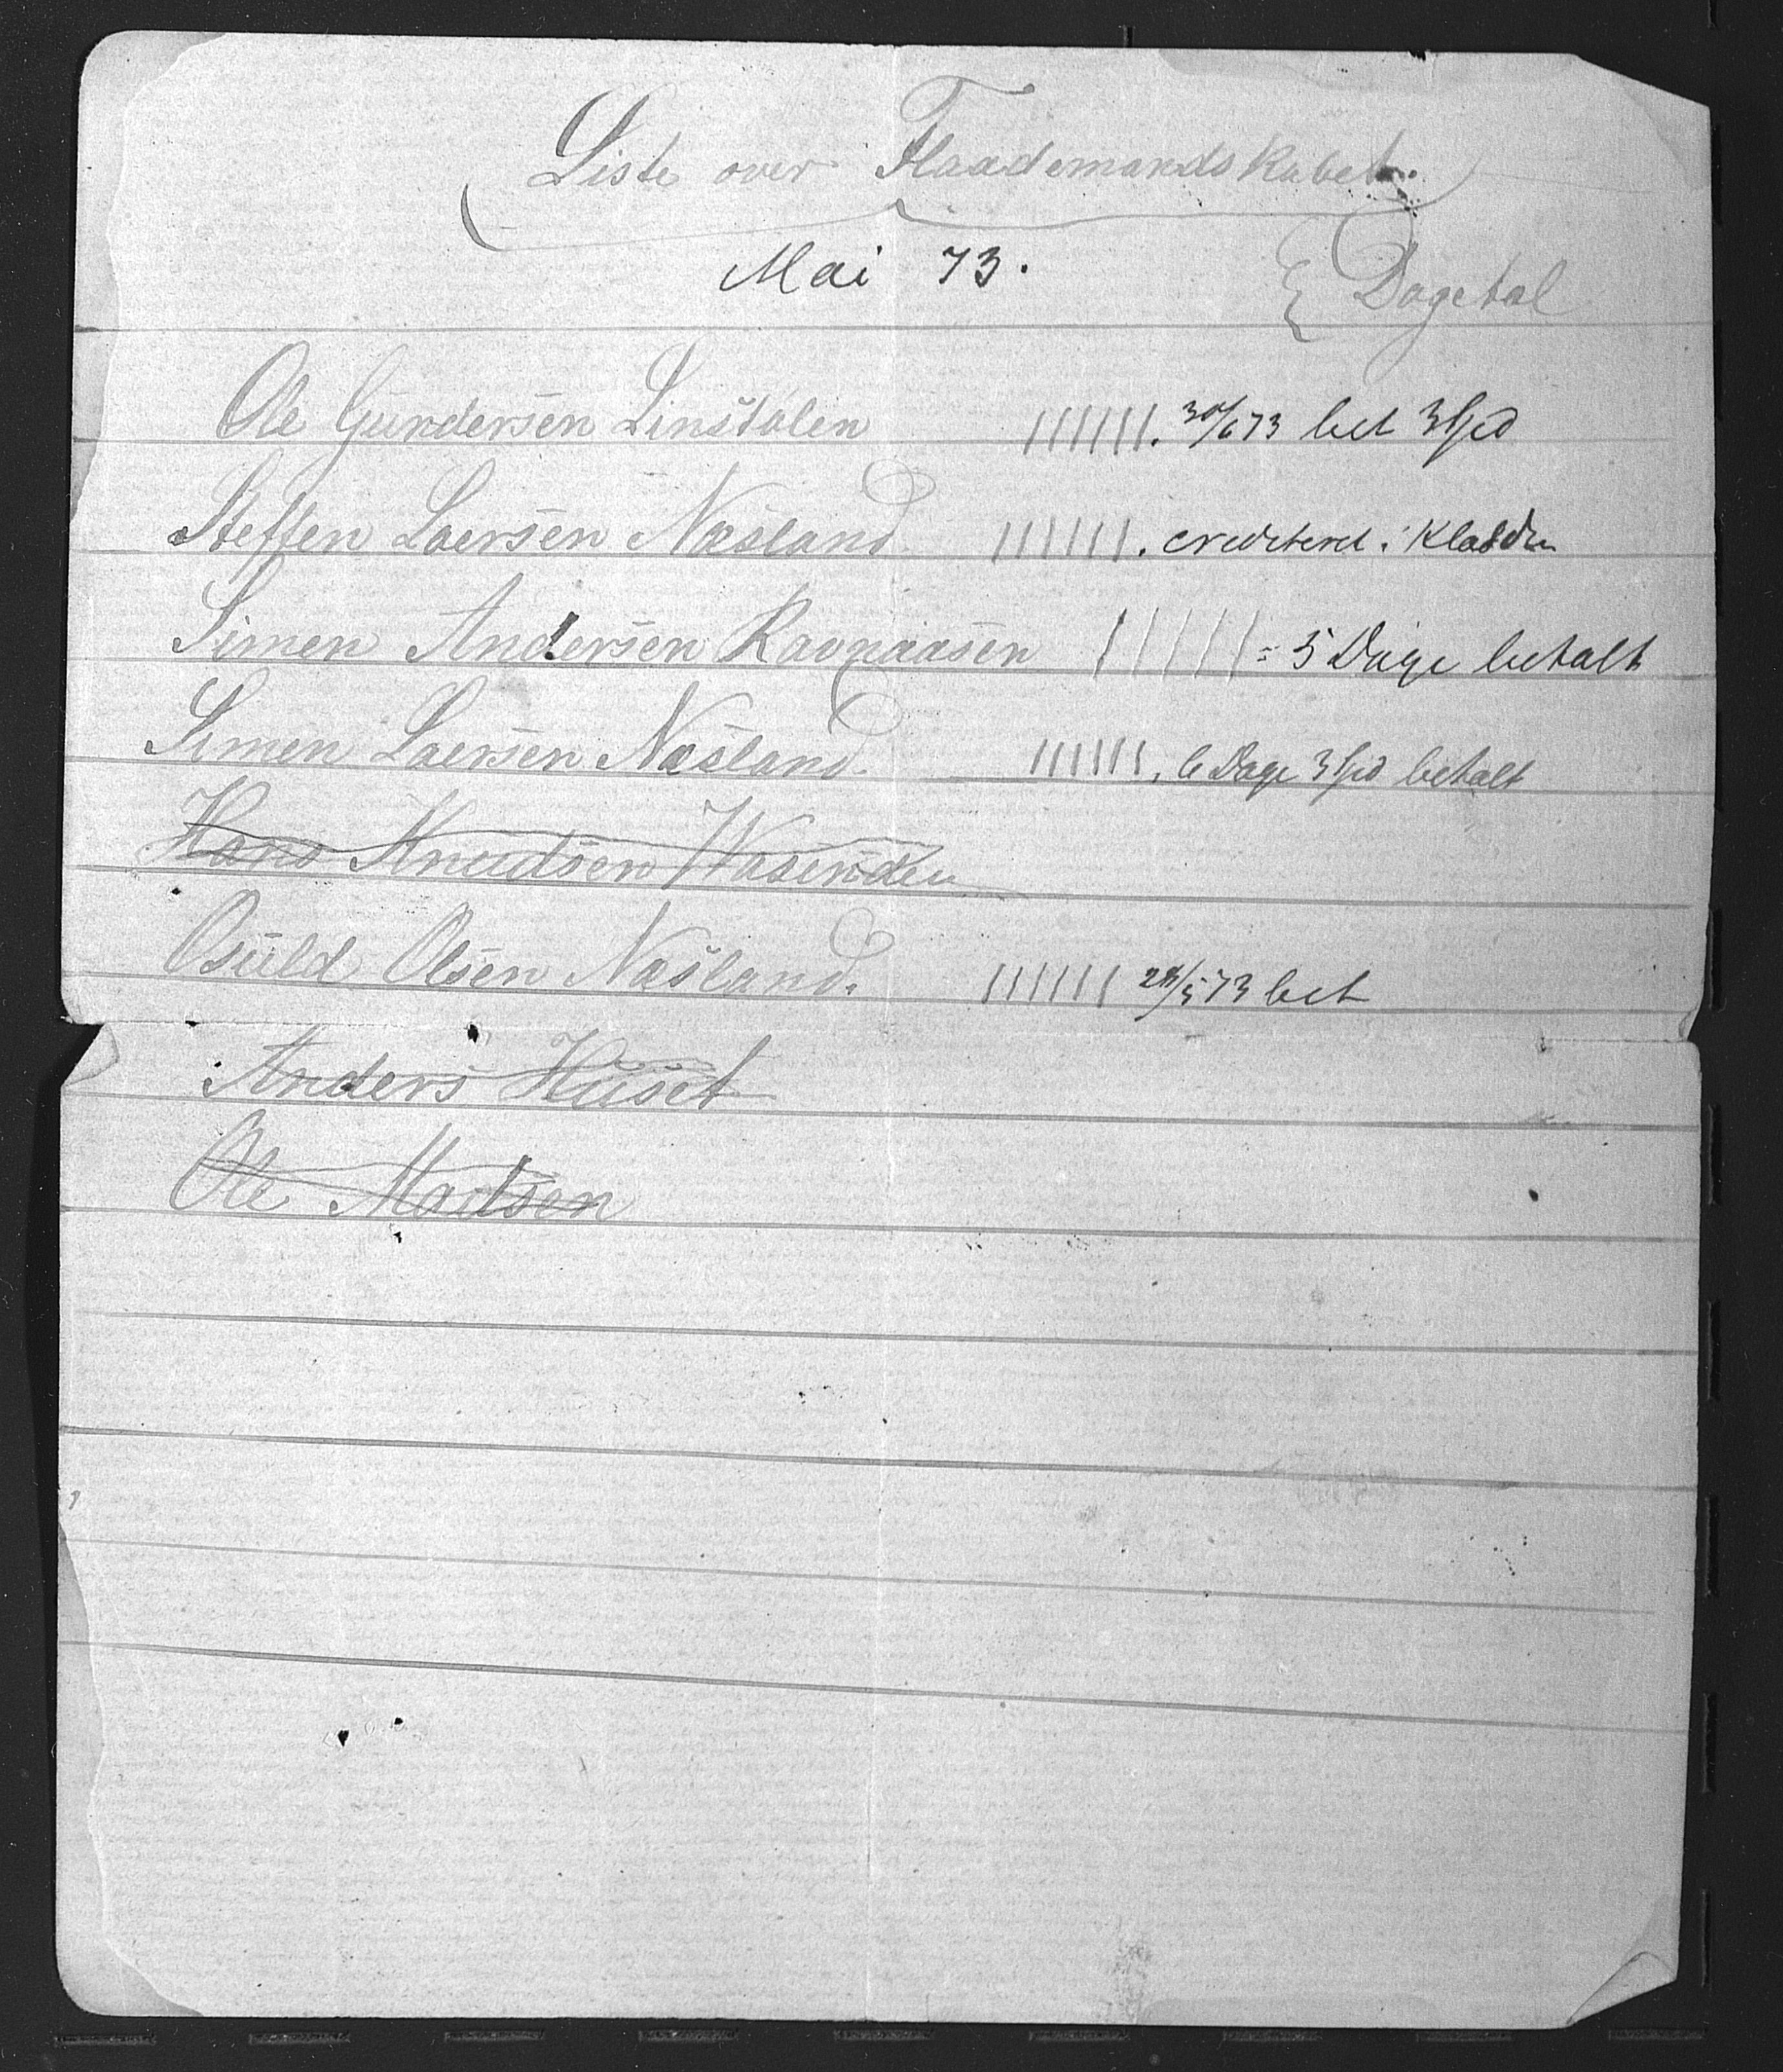 Liste over Flaademandskabet.
Mai 73.
Dagetal
Ole Gundersen Linstølen |||||||. 30/6 73 bet 3 Spd
Steffen Laersen Næsland ||||||. crediteret i Kladden
Simen Andersen Ravnaasen ||||| = 5 Dage betalt
Simen Laersen Næsland. ||||||. 6 Dage 3 Spd betalt
Hans Knudsen Wasenden
Osuld Olsen Næsland. |||||| 28/5 73 bet
Anders Huset
Ole Madsen